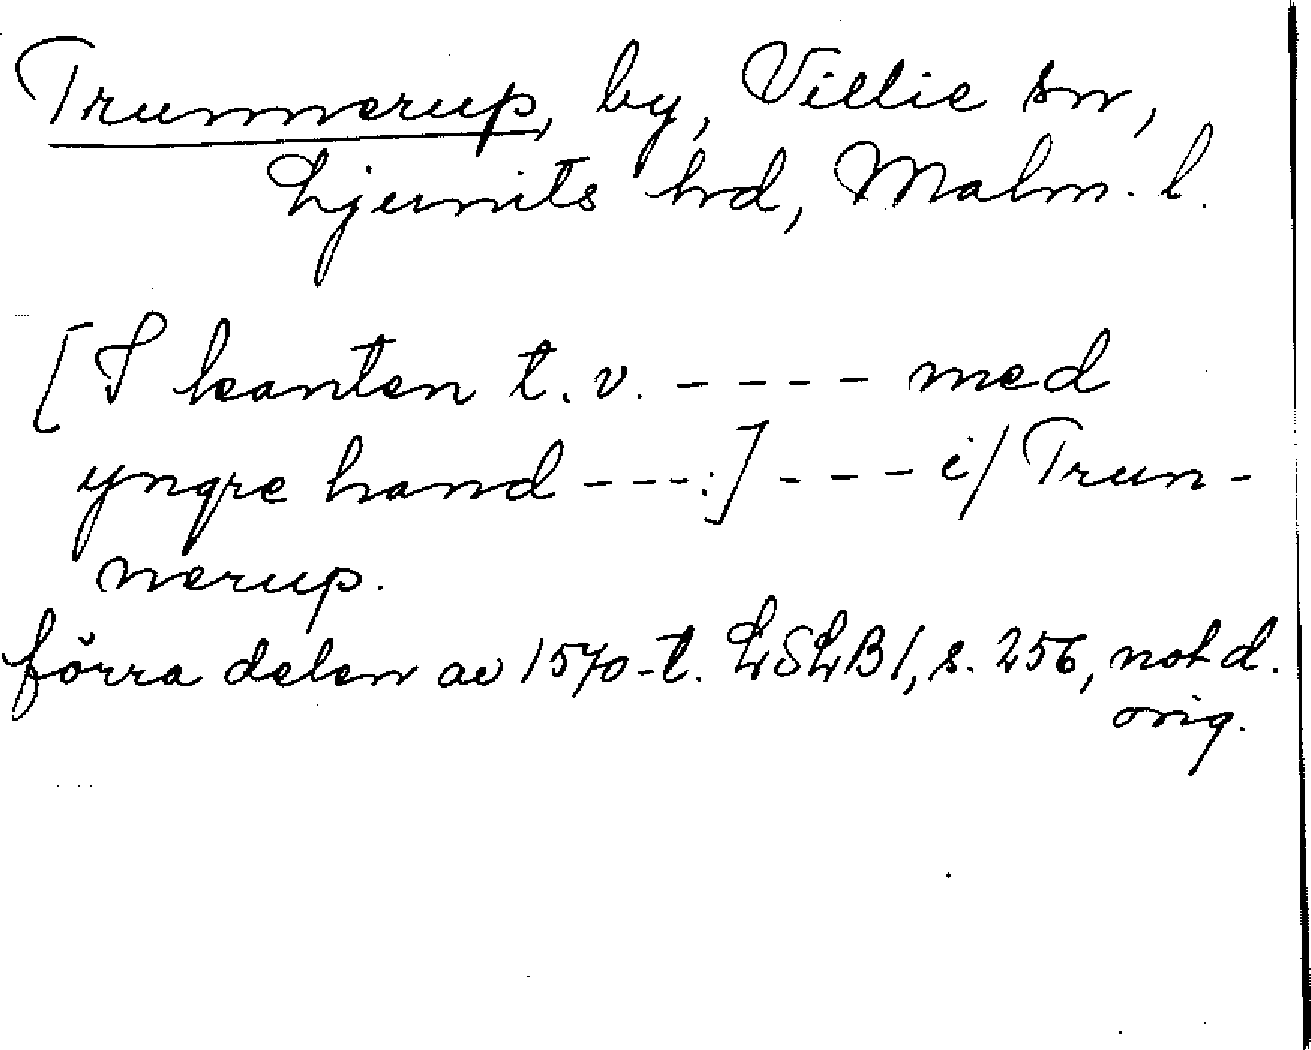 Trunnerup, by, Villie sn,
Ljunits hd, Malm. l.
[I kanten t.v. ---- med
yngre hand ---:] --- i/ Trun-
nerup.
förra delen av 1570-t. LSLB1, s. 256, not d.
orig.